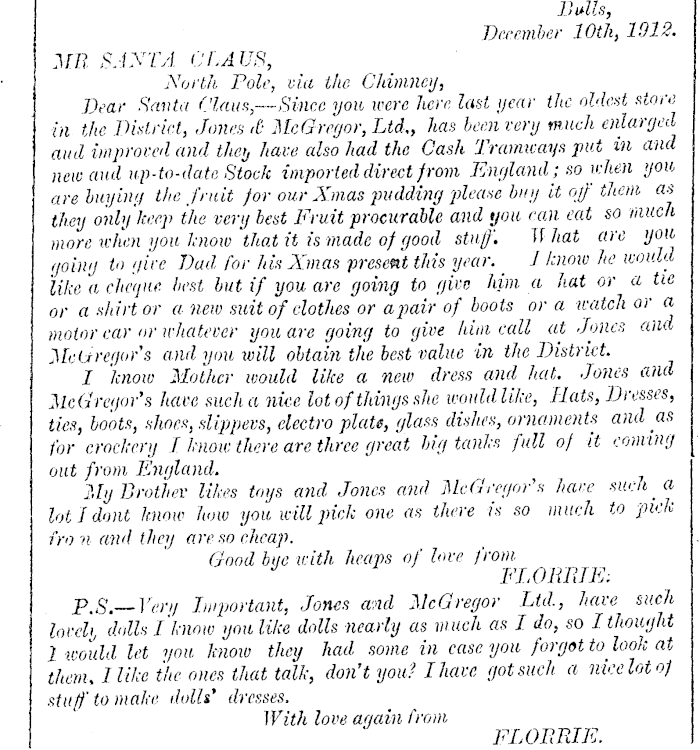 Bulls,
December 10th, 1912.
MR SANTA CLAUS,
North Pole, via the Chimney,
Dear Santa Claus,—Since you were here last year the oldest store
in the District, Jones & McGregor, Ltd., has been very much enlarged
and improved and they have also had the Cash Tramways put in and
new and up-to-date Stock imported direct from England; so when you
are buying the fruit for our Xmas pudding please buy it off them as
they only keep the very best Fruit procurable and you can eat so much
more when you know that it is made of good stuff. What are you
going to give Dad for his Xmas present this year. I know he would
like a cheque best but if you are going to give him a hat or a tie
or a shirt or a new suit of clothes or a pair of boots or a watch or a
motor car or whatever you are going to give him call at Jones and
McGregor's and you will obtain the best value in the District.
I know Mother would like a new dress and hat. Jones and
McGregor's have such a nice lot of things she would like, Hats, Dresses,
ties, boots, shoes, slippers, electro plate, glass dishes, ornaments and as
for crockery I know there are three great big tanks full of it coming
out from England.
My Brother likes toys and Jones and McGregor's have such a
lot I dont know how you will pick one as there is so much to pick
from and they are so cheap.
Good bye with heaps of love from
FLORRIE.
P.S.—Very Important, Jones and McGregor Ltd., have such
lovely dolls I know you like dolls nearly as much as I do, so I thought
I would let you know they had some in case you forgot to look at
them, I like the ones that talk, don't you? I have got such a nice lot of
stuff to make dolls' dresses.
With love again from
FLORRIE.